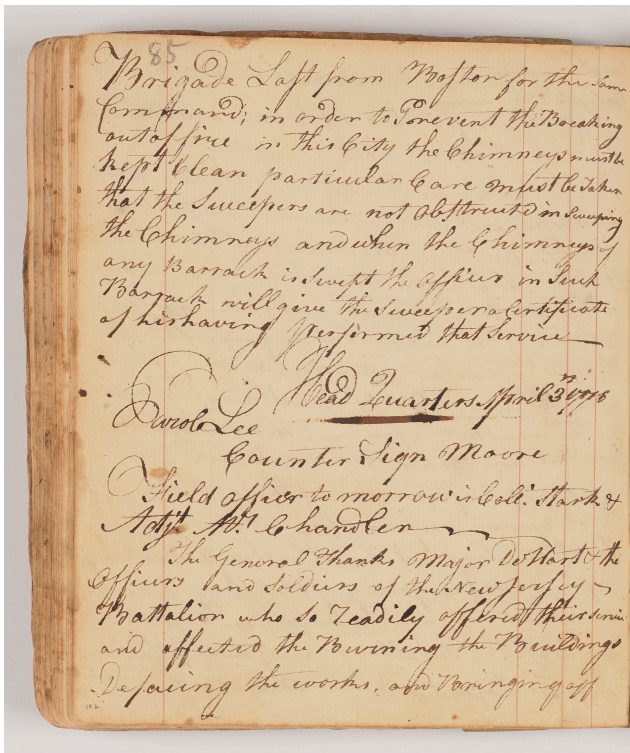 85
Brigade Last from Boston for the same
Command; in order to Prevent the Breaking
out of fire in this City the Chimneys must be
kept Clean particular Care must be Taken
that the Sweepers are not Obstructd in Sweeping
the Chimneys and when the Chimneys of
any Barrack is Swept the officer in Such
Barrack will give the Sweeper a Certificate
of his having Performed that Service
Head Quarters April 3 1776
Parole Lee
Counter Sign Moore
Field officer to morrow is Coll. Stark &
Adjt Mr Chandler
The General Thanks Major DeHart & the
Officers and Soldiers of the New Jersey
Battalion who So Readily offered their
and affected the Burning the Buildings
Defacing the works, and Bringing off
102